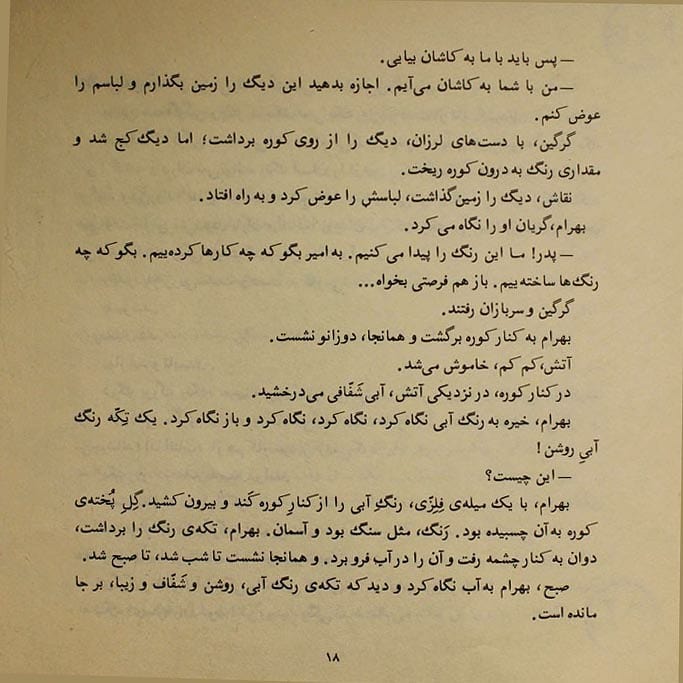 — پس باید با ما به کاشان بیایی.
— من با شما به کاشان می‌آیم. اجازه بدهید این دیگ را زمین بگذارم و لباسم را
عوض کنم.
گرگین، با دست‌های لرزان، دیگ را از روی کوره برداشت؛ اما دیگ کج شد و
مقداری رنگ به درون کوره ریخت.
نقاش، دیگ را زمین گذاشت، لباسش را عوض کرد و به راه افتاد.
بهرام، گریان او را نگاه می‌کرد.
— پدر! ما این رنگ را پیدا می‌کنیم. به امیر بگو که چه کارها کرده‌ییم. بگو که چه
رنگ‌ها ساخته‌ییم. باز هم فرصتی بخواه...
گرگین و سربازان رفتند.
بهرام به کنار کوره برگشت و همانجا، دوزانو نشست.
آتش، کم کم، خاموش می‌شد.
در کنار کوره، در نزدیکی آتش، آبی شَفّافی می‌درخشید.
بهرام، خیره به رنگ آبی نگاه کرد، نگاه کرد، نگاه کرد و باز نگاه کرد. یک تِکّه رنگ
آبیِ روشن!
— این چیست؟
بهرام، با یک میله‌ی فِلِزّی، رنگِ آبی را از کنارِ کوره کَند و بیرون کشید. گِلِ پُخته‌ی
کوره به آن چسبیده بود. رَنگ، مثل سنگ بود و آسمان. بهرام، تکه‌ی رنگ را برداشت،
دوان به کنار چشمه رفت و آن را در آب فرو برد. و همانجا نشست تا شب شد، تا صبح شد.
صبح، بهرام به آب نگاه کرد و دید که تکه‌ی رنگ آبی، روشن و شَفّاف و زیبا، بر جا
مانده است.
۱۸